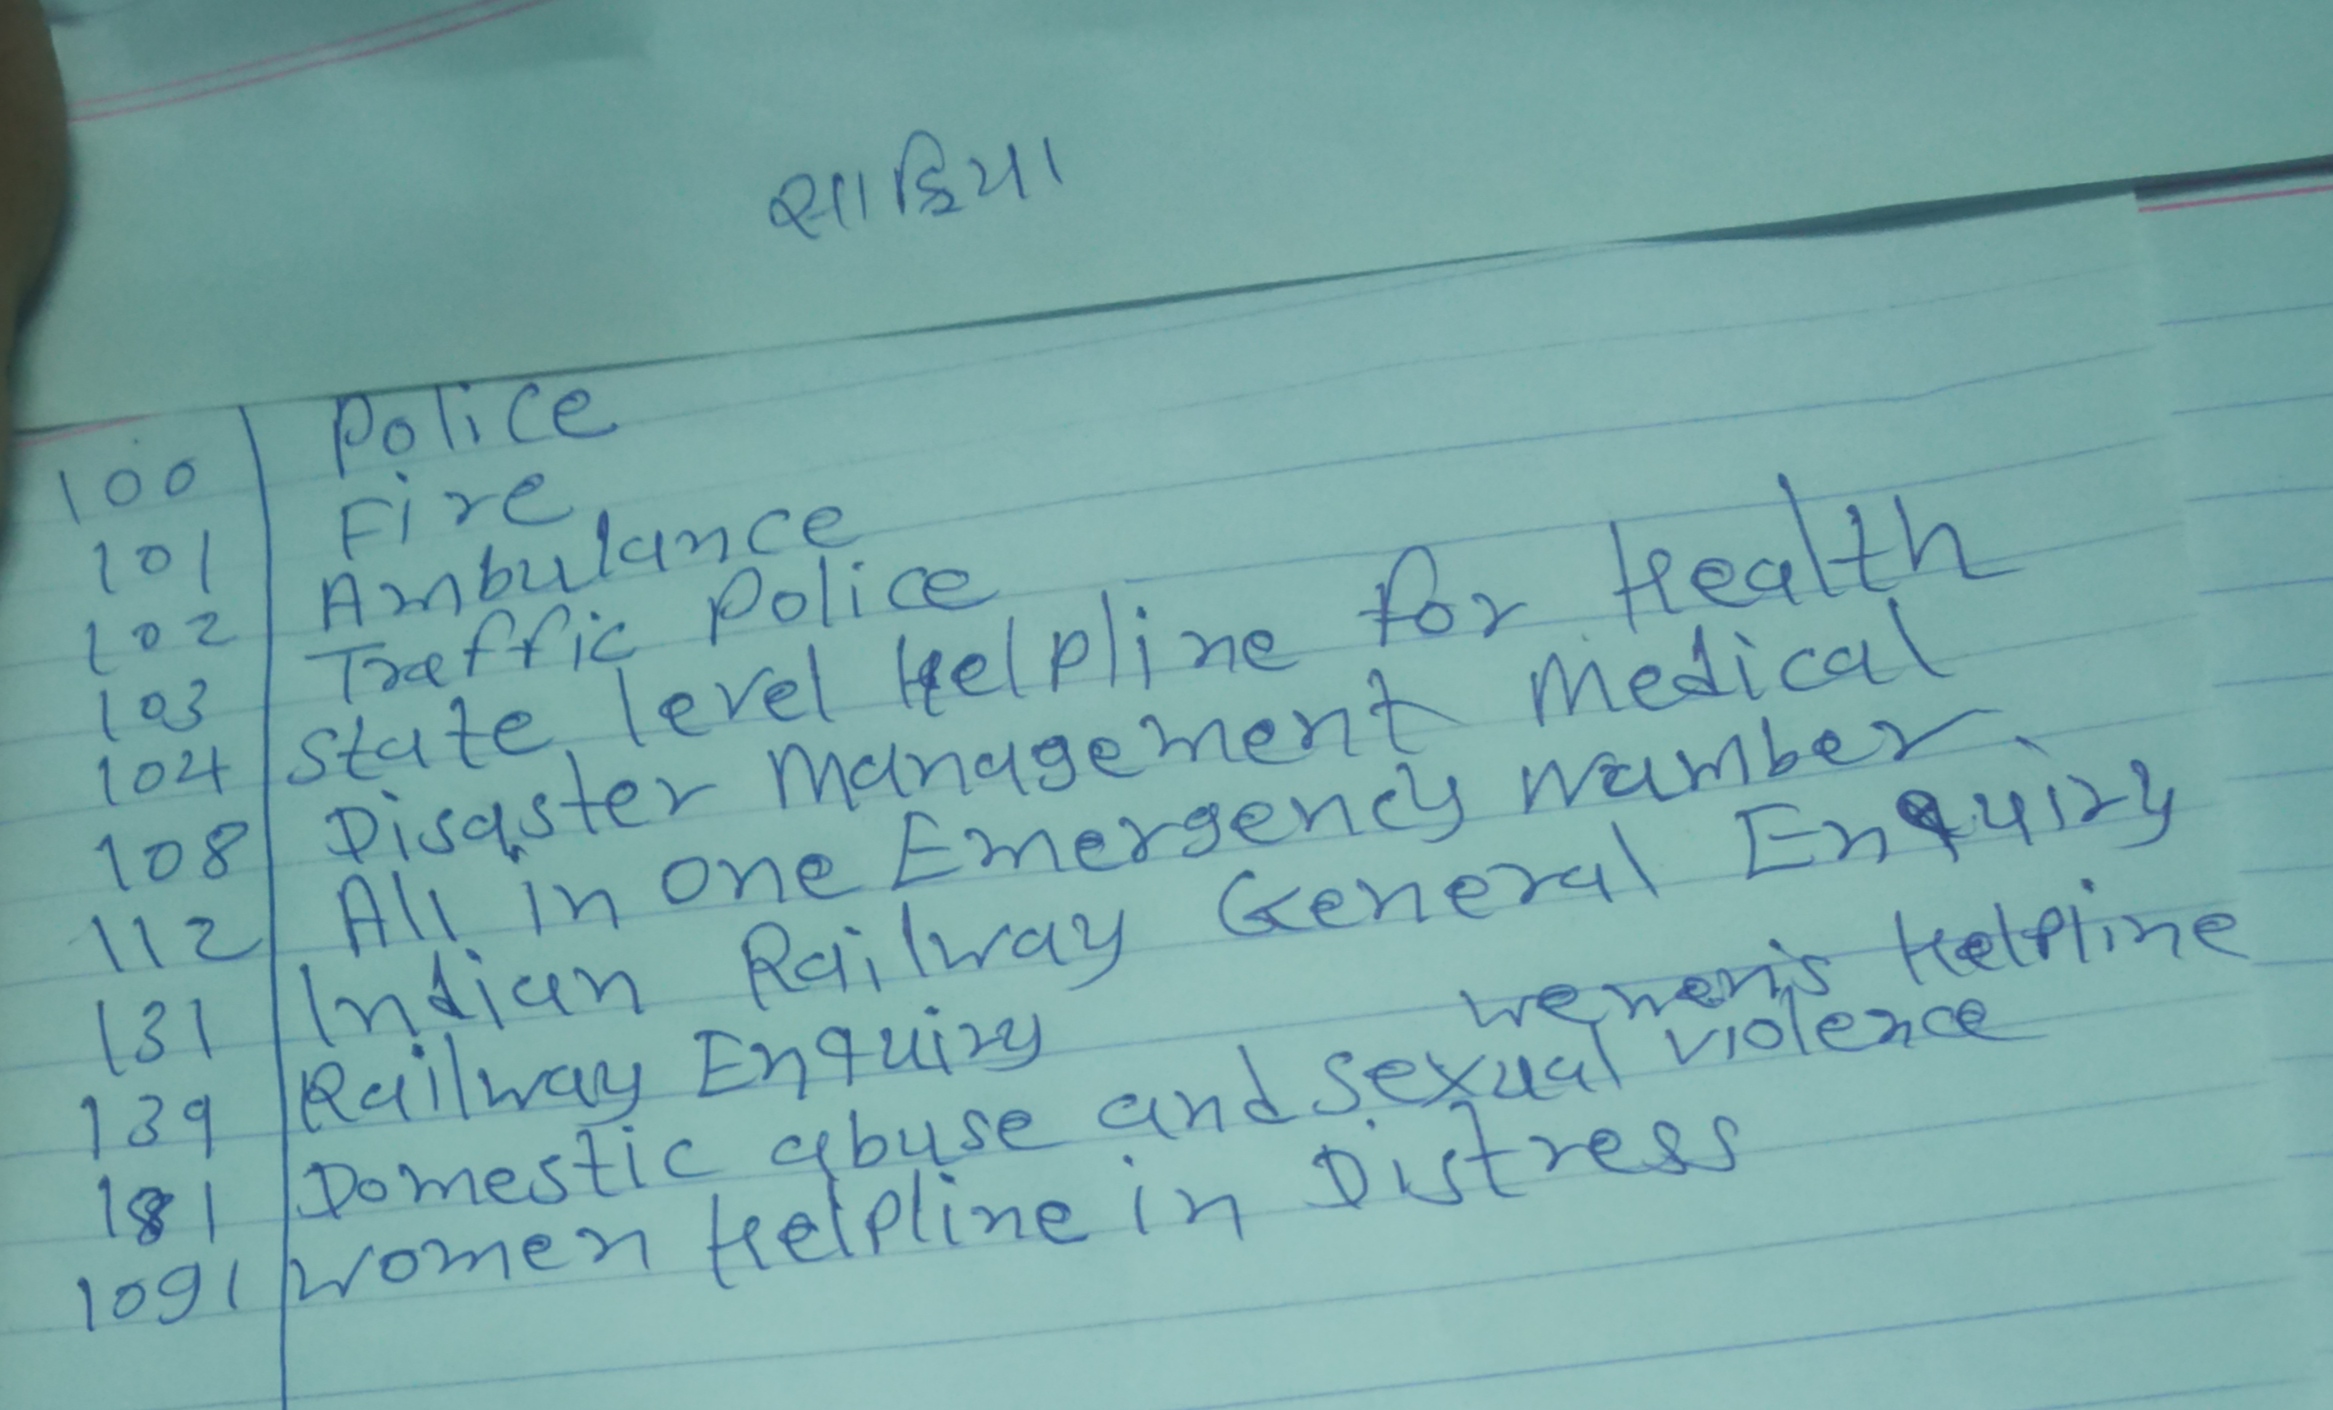 સાહિયા
100 Police
101 Fire
102 Ambulance
103 Traffic Police
104 State level Helpline for Health
108 Disaster Management Medical
112 All in one Emergency Number
131 Indian Railway General Enquiry
139 Railway Enquiry
women's Helpline
181 Domestic abuse and sexual violence
1091 Women Helpline in Distress